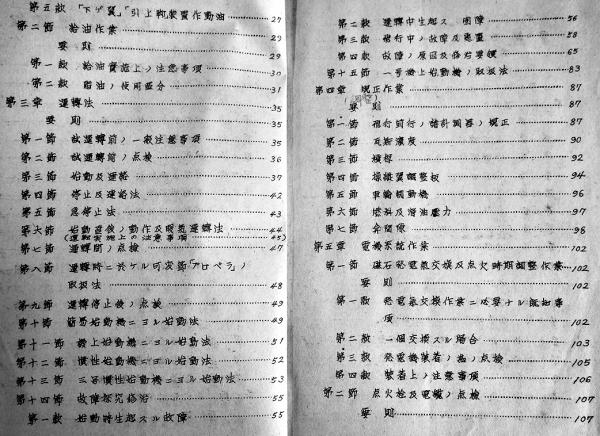 第五款 「下ゲ翼」引上[?]装置作動油 27
第二節 給油作業 29
要則 29
第一款 給油實施上ノ注意事項 30
第二款 脂油ノ使用區分 31
第三章 運轉法 35
要則 35
第一節 試運轉前ノ一般注意事項 35
第二節 試運轉前ノ点檢 36
第三節 始動及運轉 37
第四節 停止及連絡法 42
第五節 急停止法 43
第六節 始動直後ノ動作及暖機運轉法 44
(運轉実施上の注意事項 45)
第七節 運轉間ノ点檢 47
第八節 運轉時ニ於ケル可変節「プロペラ」ノ
取扱法 48
第九節 運轉停止後ノ点檢 49
第十節 簡易始動機ニヨル始動法 49
第十一節 機上始動機ニヨル始動法 51
第十二節 慣性始動機ニヨル始動法 52
第十三節 三号慣性始動機ニヨル始動法 53
第十四節 故障探究修治 55
第一款 始動時生起スル故障 55
第二款 運轉中生起スル故障 56
第三款 飛行中ノ故障及處置 58
第四款 故障ノ原因及修治要領 65
第十五節 一号機上始動機ノ取扱法 83
第四章 規正作業 87
要則 87
第一節 飛行前行ノ諸計調器ノ規正 87
第二節 瓦斯濃度 90
第三節 爆燃 92
第四節 94
第五節 96
第六節 燃料及滑油壓力 97
第七節 弁間隙 98
第五章 電機系統作業 102
第一節 磁石発電氣交換及点火時期調整作業 102
要則 102
第一款 発電氣交換作業ニ必要ナル準備事
項 102
第二款 一個交換スル場合 103
第三款 発電機装着ノ為ノ点檢 105
第四款 装着上ノ注意事項 106
第二節 点火栓及電纜ノ点檢 107
要則 107